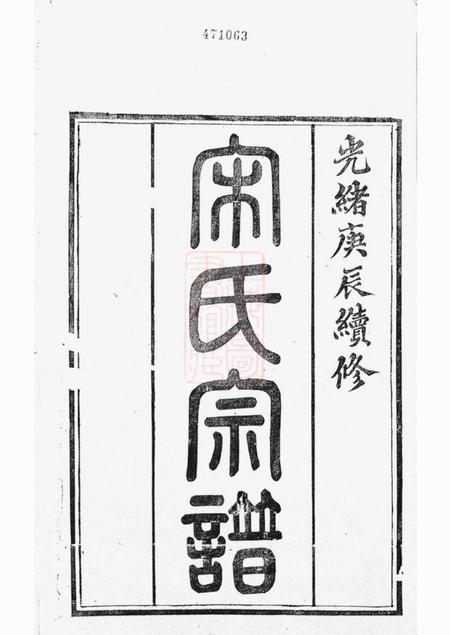 471063
光緒庚辰續修
宋氏宗譜